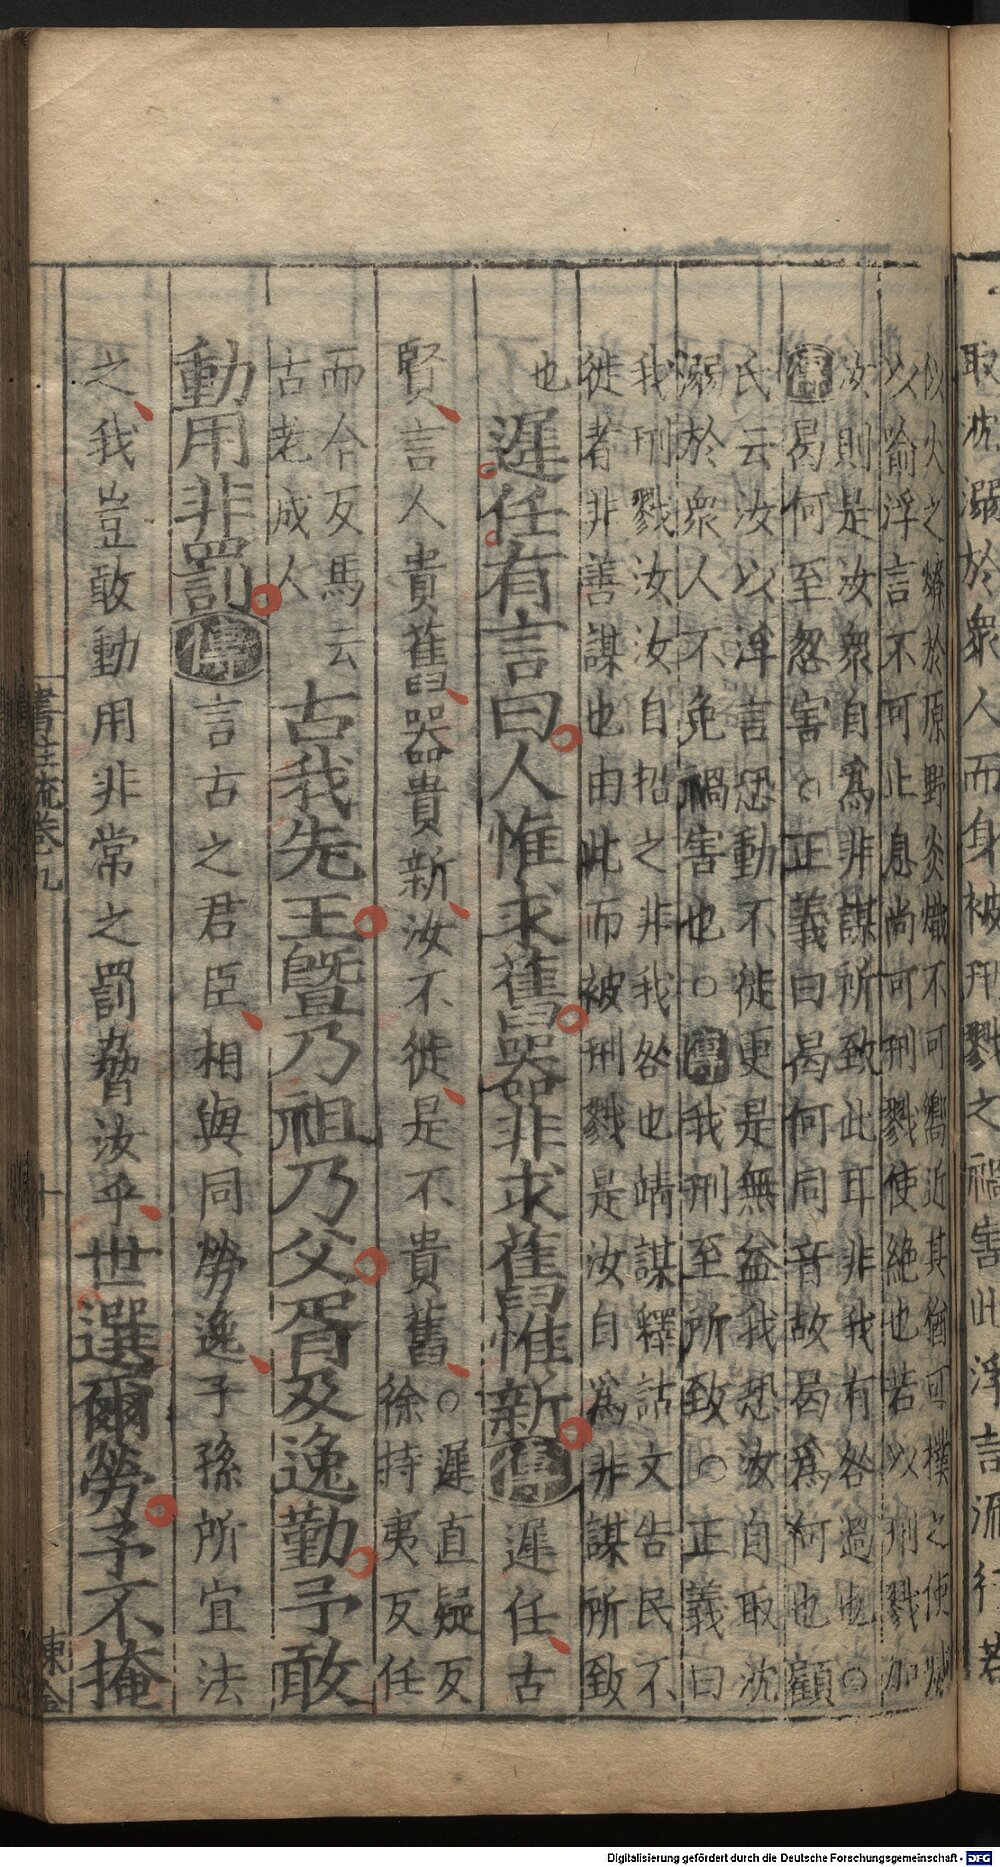 取沈溺於衆人而身被刑戮之禍害此浮言流行若
似火之燎於原野炎熾不可嚮近其猶可撲之使滅
以喻浮言不可止息尚可刑戮使絶也若以刑戮加
汝則是汝衆自爲非謀所致此耳非我有咎過也○
傳曷何至忽害○正義曰曷何同音故曷爲何也顧
氏云汝以浮言恐動不徙更是無益我恐汝自取沈
溺於衆人不免禍害也○傳我刑至所致○正義曰
我刑戮汝汝自招之非我咎也靖謀釋詁文告民不
徙者非善謀也由此而被刑戮是汝自爲非謀所致
也 遲任有言曰人惟求舊器非求舊惟新傳遲任古
賢言人貴舊器貴新汝不徙是不貴舊○遲直疑反
徐持夷反任
而今反馬云
古老成人 古我先王曁乃祖乃父胥及逸勤予敢
動用非罰傳言古之君臣相與同勞逸子孫所宜法
之我豈敢動用非常之罰脅汝乎世選爾勞予不掩
書注疏卷九 十 陳金
Digitalisierung gefördert durch die Deutsche Forschungsgemeinschaft - DFG